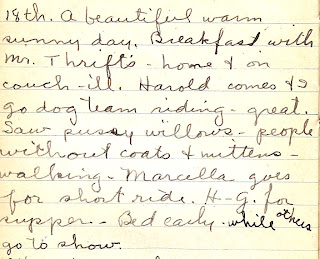 18th. A beautiful warm
sunny day. Breakfast with
Mr. Thrift's - home & on
couch - ill. Harold comes & I
go dog team riding - great.
Saw pussy willows - people
without coats & mittens -
walking - Marcella goes
for short ride. H-G. for
supper. - Bed early - while others
go to show.